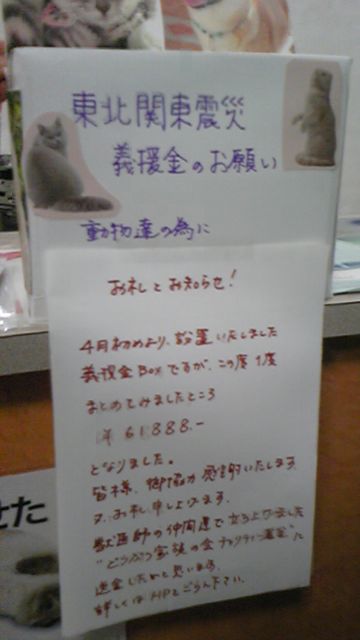 東北関東震災
義援金のお願い
動物達の為に
お礼とお知らせ!
4月初めより、設置いたしました
義援金Boxですが、この度1度
まとめてみましたところ
¥ 61888.-
となりました。
皆様、御協力 感謝いたします。
又、お礼申し上げます。
獣医師の仲間達で立ち上げました
"どうぶつ家族の会
送金したいと思います。
詳しくはHPをごらん下さい。
せた